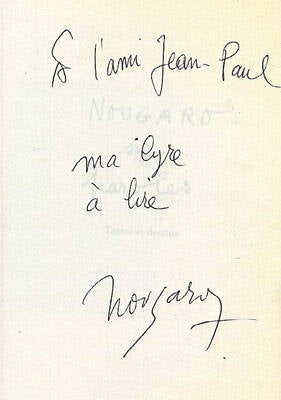 À l'ami Jean-Paul
NOUGARO
sur
paroles
ma lyre
à lire
Textes et dessins
Nougaro